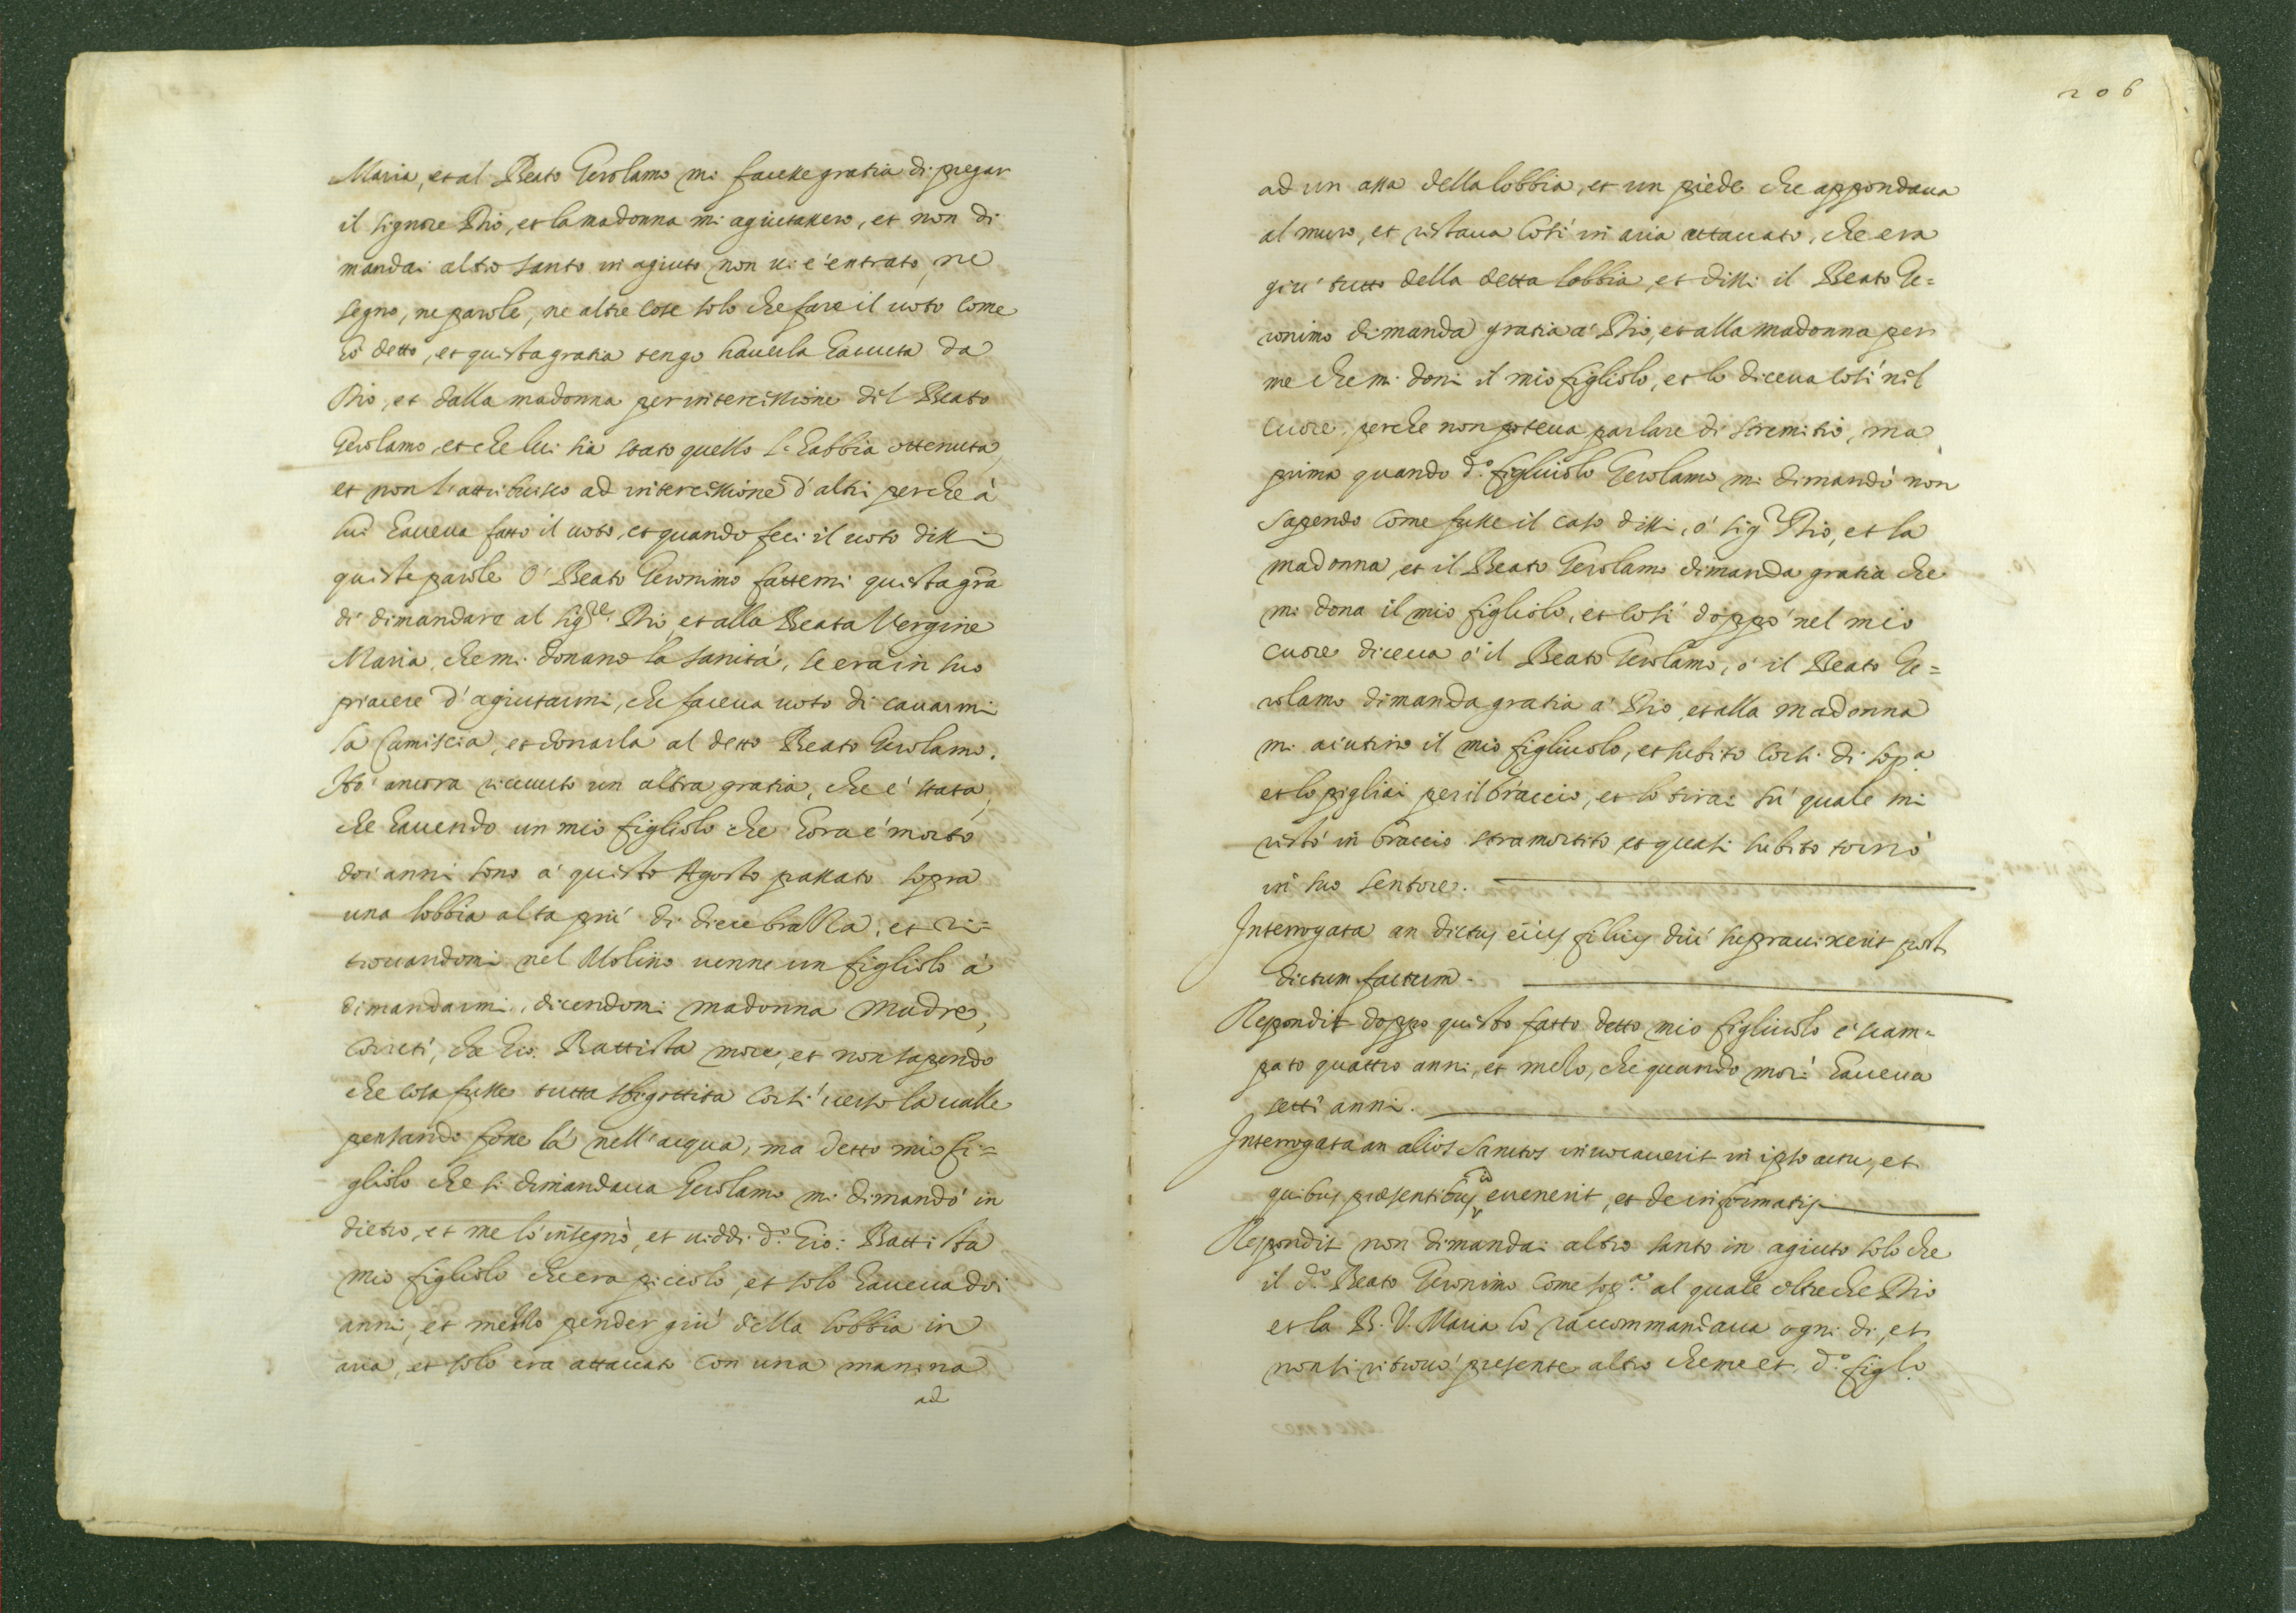 Maria, et al Beato Gerolamo mi facesse gratia di pregar
il Signore Dio, et la madonna mi agiutassero, et non di
mandai altro santo in agiuto, non vi è entrato, ne
segno, ne parole, ne altre cose solo che fare il voto come
hò detto, et quista gratia tengo haverla havuta da
Dio, et dalla madonna per intercissione dil Beato
Gerolamo, et che lui sia stato quello l'habbia ottenuta,
et non l'attribuisco ad intercissione d'altri perche à
lui haveva fatto il voto, et quando feci il voto dissi
quiste parole ò Beato Geronimo fattemi quista gr̃a
di dimandare al Sig.re Dio, et alla Beata Vergine
Maria, che mi donano la sanità, se era in suo
piacere d'agiutarmi, che faceva voto di cavarmi
la Camiscia, et donarla al detto Beato Gerolamo.
Hò ancora ricevuto un altra gratia, che è stata,
che havendo un mio figliolo che hora è morto
doi anni sono à quisto Agosto passato sopra
una lobbia alta più di diece brassa, et ri=
trovandomi nel Molino venne un figliolo à
dimandarmi, dicendomi madonna madre,
correti, che Gio. Battista more, et non sapendo
che cosa fusse tutta sbigottita corsi verso la valle
pensando fosse là nell'acqua, ma detto mio fi=
gliolo che si dimandava Gerolamo mi dimandò in
dietro, et me lo insegnò, et viddi d.o Gio: Battista
mio figliolo che era piccolo, et solo haveva doi
anni, et mezzo pender giù della lobbia in
aria, et solo era attaccato con una manina
ad
206
ad un assa della lobbia, et un piede che appondava
al muro, et ristava cosi in aria attaccato, che era
giù tutto della detta lobbia, et dissi il Beato Ge=
ronimo dimanda gratia à Dio, et alla madonna per
me che mi doni il mio figliolo, et lo diceva cosi nil
cuore, perche non poteva parlare di stremitio, ma
prima quando d.o figliuolo Gerolamo mi dimandò non
sapendo come fusse il caso dissi, ò Sig.r Dio, et la
madonna, et il Beato Gerolamo dimanda gratia che
mi dona il mio figliolo, et cosi doppò nel mio
cuore diceva ò il Beato Gerolamo, ò il Beato Ge=
rolamo dimanda gratia à Dio, et alla madonna
mi aiutino il mio figliuolo, et subito corsi di sop.a
et lo pigliai per il braccio, et lo tirai sù quale mi
ristò in braccio stramortito, et quasi subito tornò
in suo sentore.
Interrogata an dictus eius filius diu supravixerit post
dictum factum.
Respondit doppo quisto fatto detto mio figliuolo è scam=
pato quattro anni, et mezo, che quando morì haveva
setti anni.
Interrogata an alios Sanctos invocaverit in ipso actu, et
quibus præsentibus id evenerit, et de informatis
Respondit non dimandai altro santo in agiuto solo che
il d.o Beato Geronimo come sop.a al quale oltre che Dio
et la B. V. Maria lo raccommandava ogni di, et
non si ritrovò presente altro che me et d.o figl.o